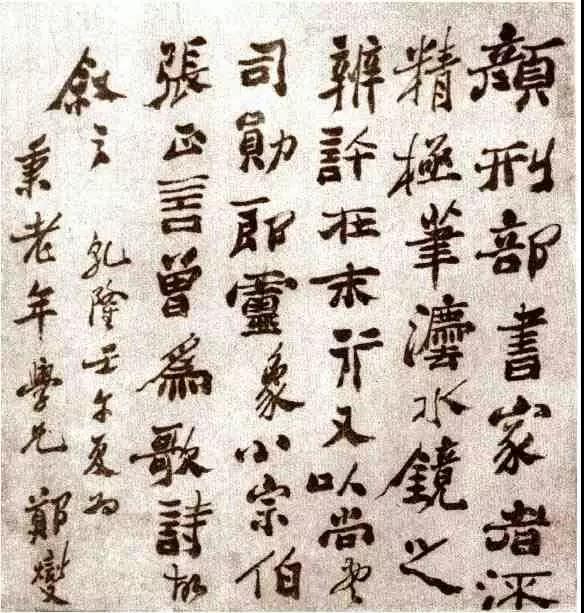 顏刑部書家者流
精極筆灋水鏡之
辨許在末行又以尚書
司勛郎盧象小宗伯
張正言曾爲歌詩故
敘之 乾隆壬午夏為
秉老年學兄 鄭燮